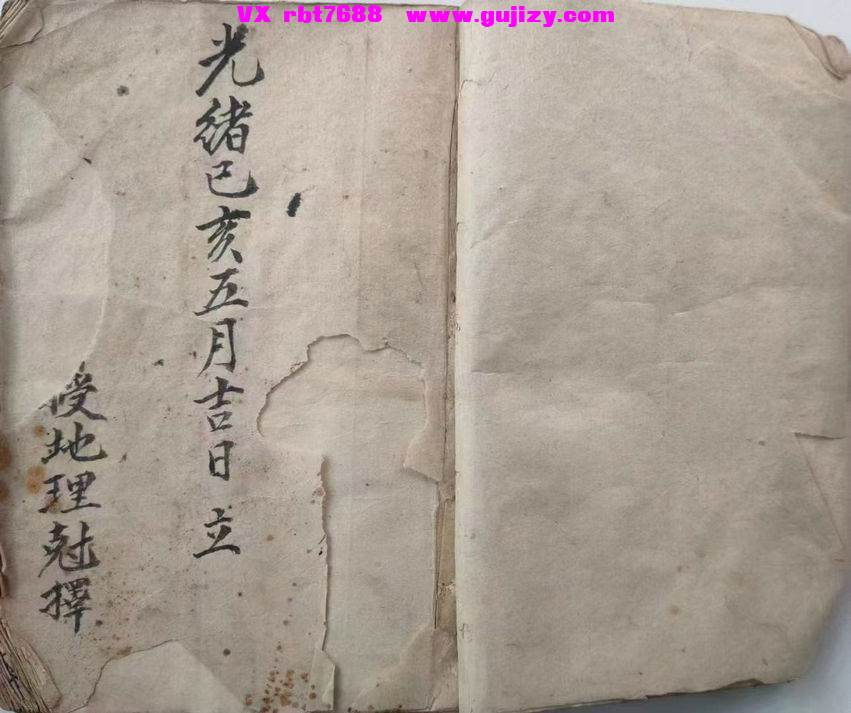 VX rbt7688 www.gujizy.com
光緒己亥五月吉日立
授地理尅擇